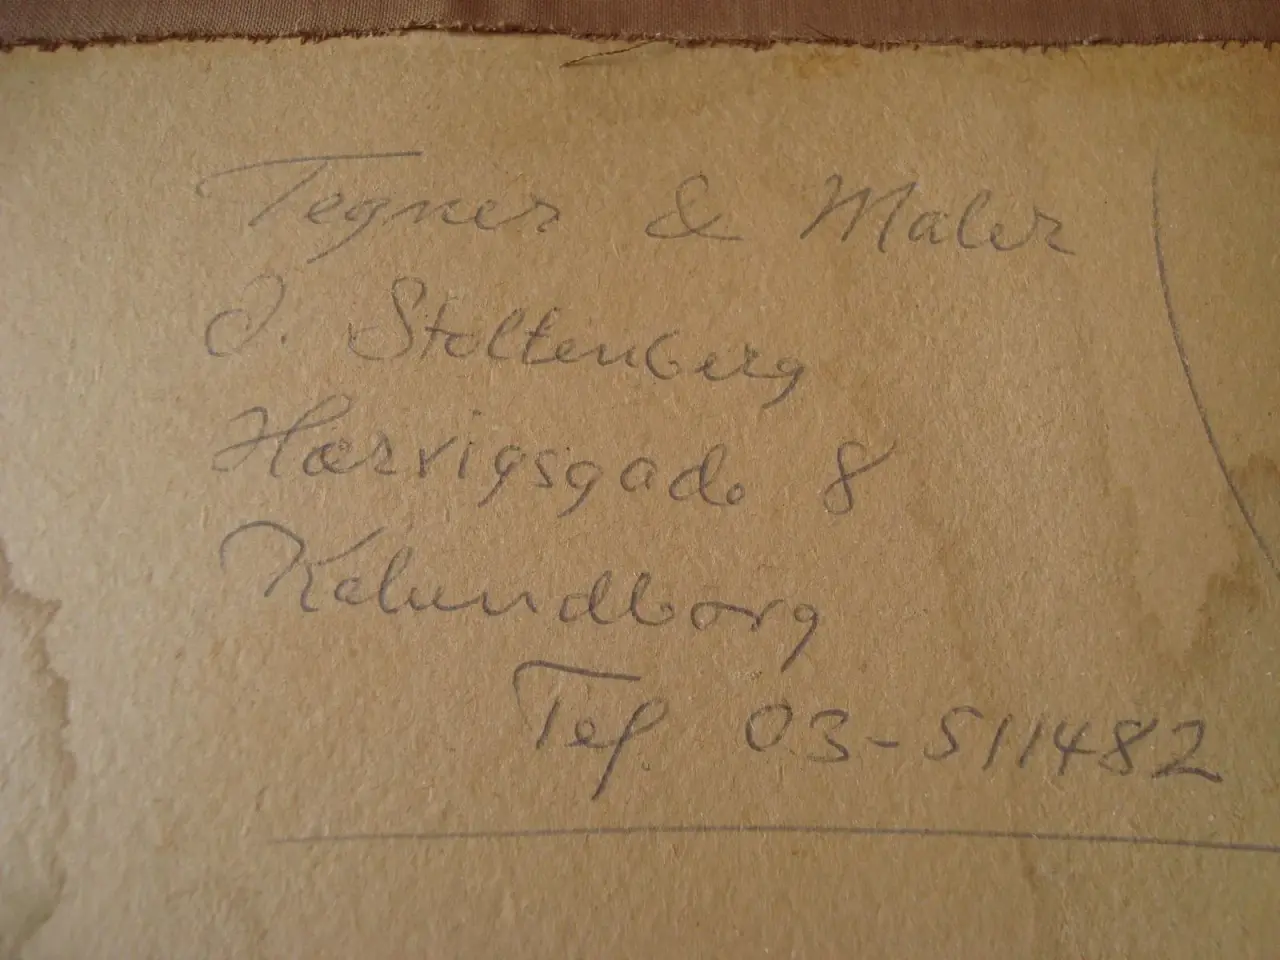 Tegner & Maler
J. Stoltenberg
Hærvigsgade 8
Kalundborg
Tef. 03-511482